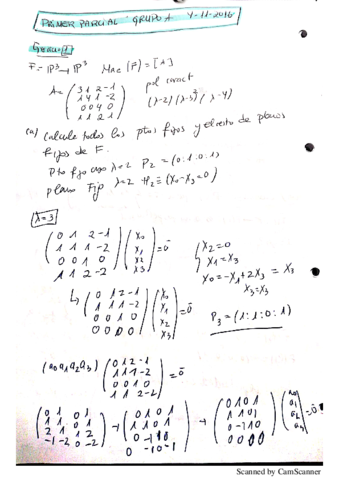 PRIMER PARCIAL. GRUPO A 4-11-2016
F = P³→P³ Mac (F) = [A]
A = (3 1 2 -1
1 4 1 -2
0 0 4 0
1 1 2 1)
pol caract
(λ-2)(λ-3)²(λ-4)
(a) Calcule todos los ptos fijos y el resto de planos
fijos de F.
Pto fijo λ=2 P₂ = (0:1:0:1)
plano Fijo λ=2 H₂ ≡ (x₀-x₃=0)
λ=3
(0 1 2 -1
1 1 1 -2
0 0 1 0
1 1 2 -2) (x₀ x₁ x₂ x₃) = 0̄
x₂=0
x₁=x₃
x₀=-x₁+2x₃ = x₃
x₃=x₃
↳ (0 1 2 -1
1 1 1 -2
0 0 1 0
0 0 0 0) (x₀ x₁ x₂ x₃) = 0̄
P₃ = (1:1:0:1)
(a₀ a₁ a₂ a₃) (0 1 2 -1
1 1 1 -2
0 0 1 0
1 1 2 -2) = 0̄
(0 1 0 1
1 1 0 1
2 1 1 2
-1 -2 0 -2) → (0 1 0 1
1 1 0 1
0 -1 1 0
0 -1 0 -1) → (0 1 0 1
1 1 0 1
0 -1 1 0
0 0 0 0) (a₀ a₁ a₂ a₃) = 0̄
Scanned by CamScanner